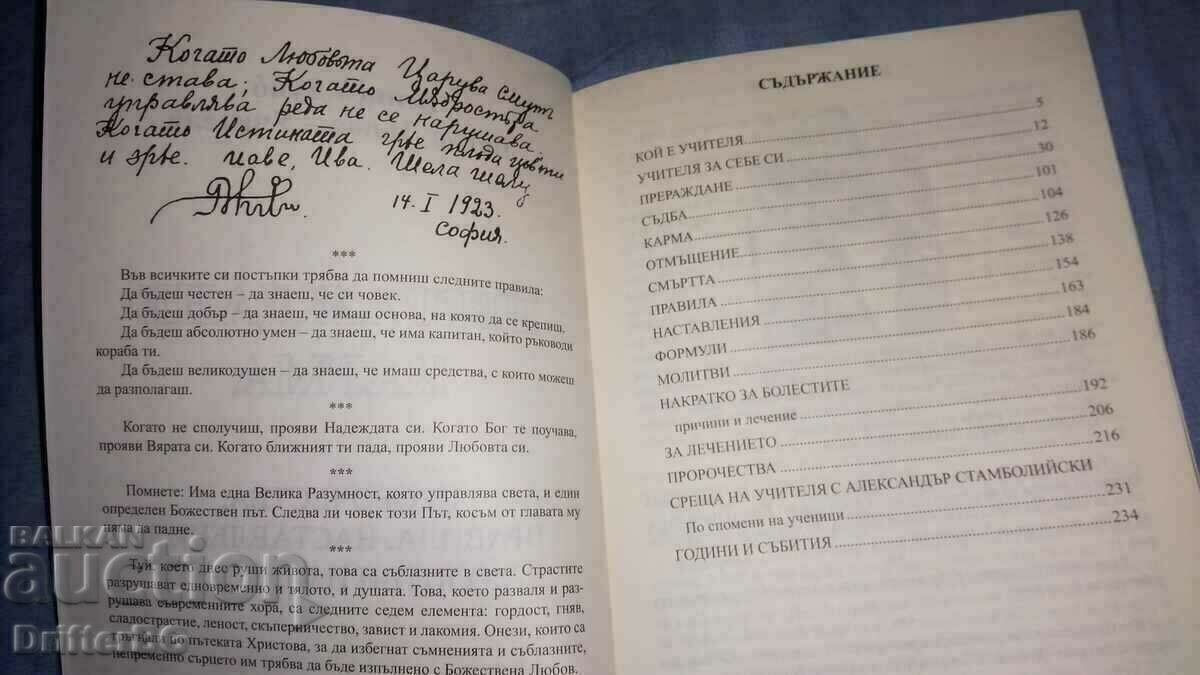 Когато Любовьта Царува смут
не става; Когато Мѫдростьта
управлява реда не се нарушава.
Когато Истината грѣе плода цъвти
и зрѣе.
14. I 1923.
София.
***
Във всичките си постъпки трябва да помниш следните правила:
Да бъдеш честен – да знаеш, че си човек.
Да бъдеш добър – да знаеш, че имаш основа, на която да се крепиш.
Да бъдеш абсолютно умен – да знаеш, че има капитан, който ръководи
кораба ти.
Да бъдеш великодушен – да знаеш, че имаш средства, с които можеш
да разполагаш.
***
Когато не сполучиш, прояви Надеждата си. Когато Бог те поучава,
прояви Вярата си. Когато ближният ти пада, прояви Любовта си.
***
Помнете: Има една Велика Разумност, която управлява света, и един
определен Божествен път. Следва ли човек този Път, косъм от главата му
няма да падне.
***
Туй, което днес руши живота, това са съблазните в света. Страстите
разрушават едновременно и тялото, и душата. Това, което разваля и раз-
рушава съвременните хора, са следните седем елемента: гордост, гняв,
сладострастие, леност, скъперничество, завист и лакомия. Онези, които са
тръгнали по пътеката Христова, за да избегнат съмненията и съблазните,
непременно сърцето им трябва да бъде изпълнено с Божествена Любов.
СЪДЪРЖАНИЕ
КОЙ Е УЧИТЕЛЯ 5
УЧИТЕЛЯ ЗА СЕБЕ СИ 12
ПРЕРАЖДАНЕ 30
СЪДБА 101
КАРМА 104
ОТМЪЩЕНИЕ 126
СМЪРТТА 138
ПРАВИЛА 154
НАСТАВЛЕНИЯ 163
ФОРМУЛИ 184
МОЛИТВИ 186
НАКРАТКО ЗА БОЛЕСТИТЕ
причини и лечение 192
ЗА ЛЕЧЕНИЕТО 206
ПРОРОЧЕСТВА 216
СРЕЩА НА УЧИТЕЛЯ С АЛЕКСАНДЪР СТАМБОЛИЙСКИ
По спомени на ученици 231
ГОДИНИ И СЪБИТИЯ 234
BALKAN
auction